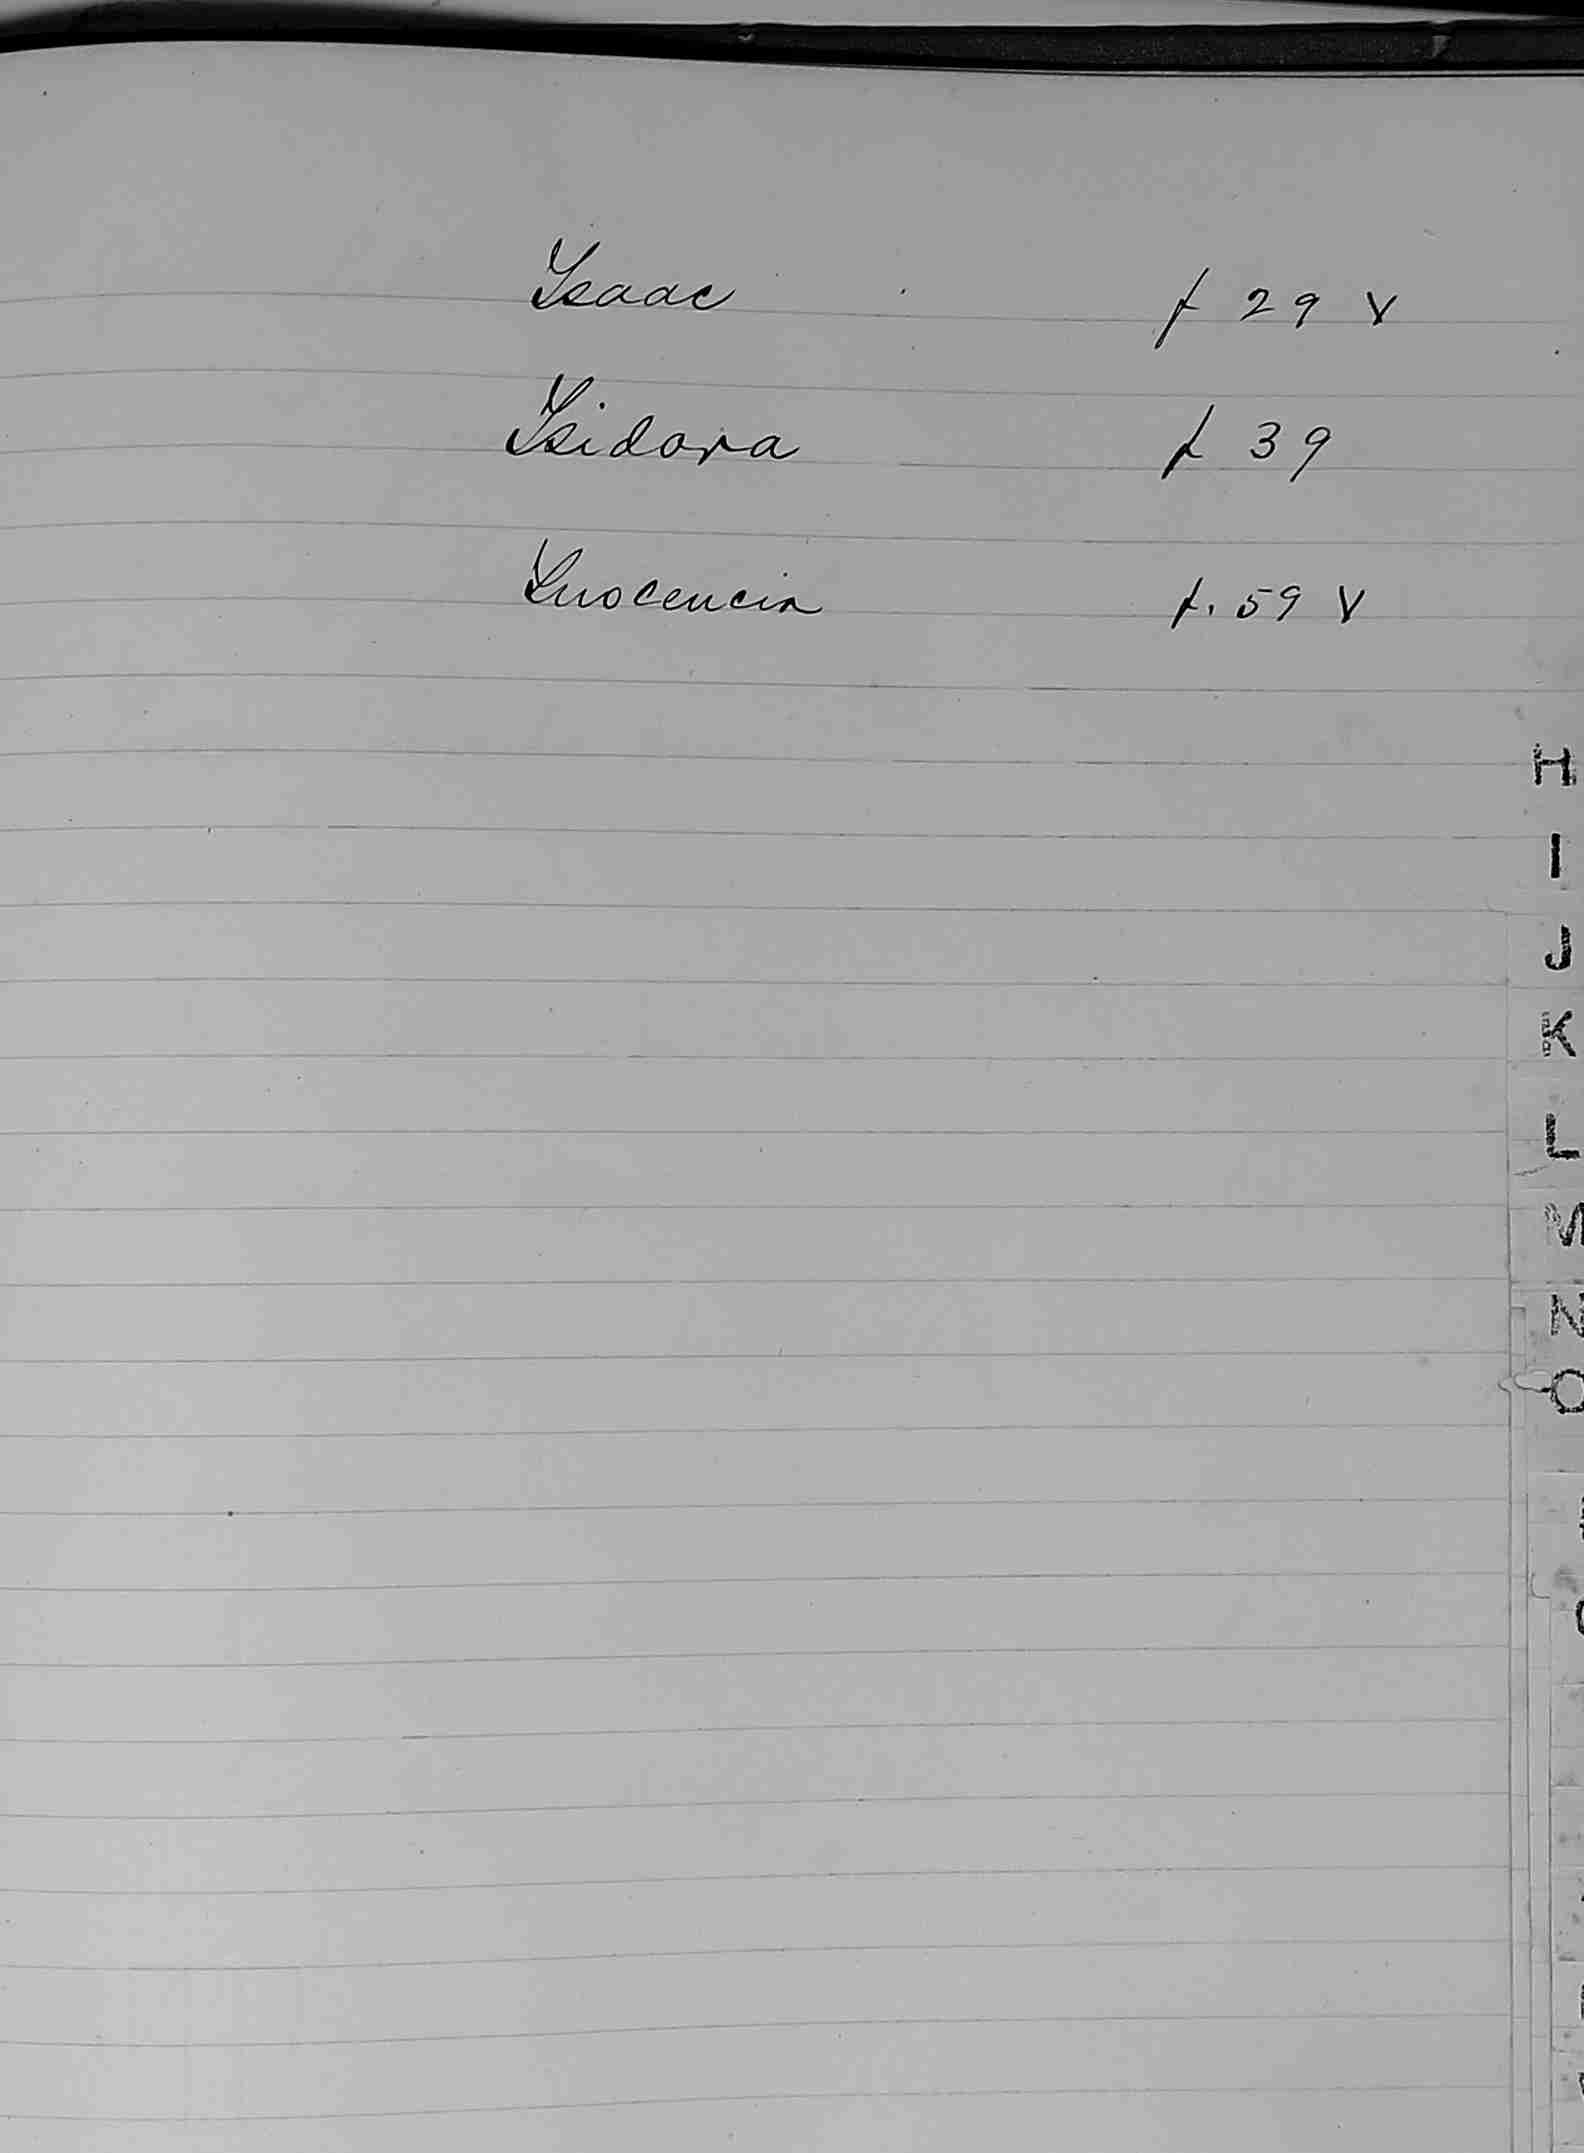 Isaac f 29 v
Isidora f 39
Inocencia f. 59 v
H
I
J
K
L
M
N
O